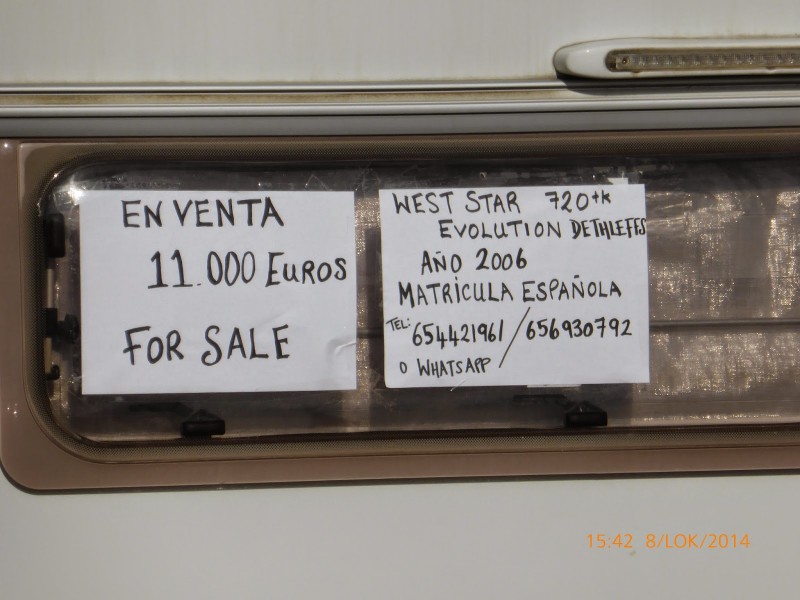 EN VENTA
11.000 EUROS
FOR SALE
WEST STAR 720+K
EVOLUTION DETHLEFFS
AÑO 2006
MATRÍCULA ESPAÑOLA
TEL: 654421961/656930792
O WHATSAPP
15:42 8/LOK/2014